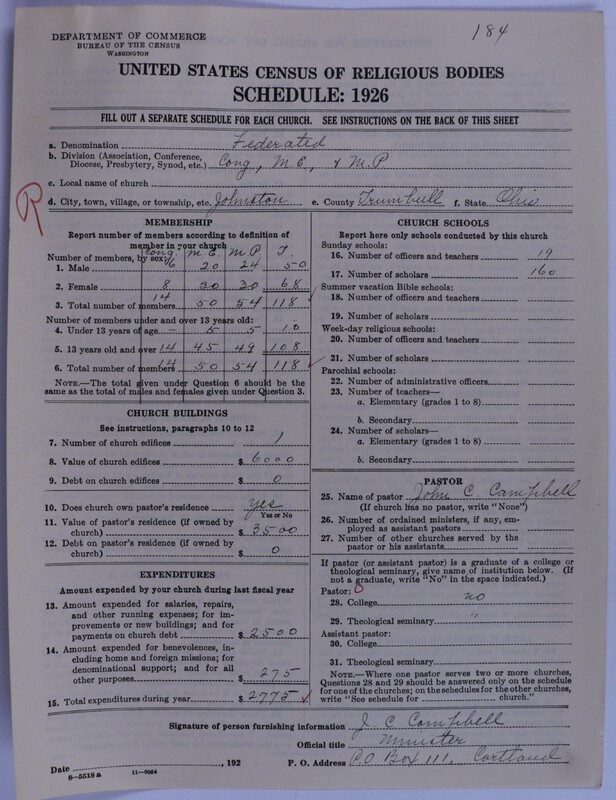 184
DEPARTMENT OF COMMERCE
BUREAU OF THE CENSUS
WASHINGTON
UNITED STATES CENSUS OF RELIGIOUS BODIES
SCHEDULE: 1926
FILL OUT A SEPARATE SCHEDULE FOR EACH CHURCH. SEE INSTRUCTIONS ON THE BACK OF THIS SHEET
a. Denomination Federated
b. Division (Association, Conference, Diocese, Presbytery, Synod, etc.) Cong, M.E, & M.P
c. Local name of church
d. City, town, village, or township, etc. Johnston e. County Trumbull f. State Ohio
R
MEMBERSHIP
Report number of members according to definition of
member in your church
Cong. M.E. M P T.
Number of members, by sex:
1. Male 6 20 24 50
2. Female 8 30 30 68
3. Total number of members 14 50 54 118
Number of members under and over 13 years old:
4. Under 13 years of age - 5 5 10
5. 13 years old and over 14 45 49 108
6. Total number of members 14 50 54 118
NOTE.—The total given under Question 6 should be the
same as the total of males and females given under Question 3.
CHURCH BUILDINGS
See instructions, paragraphs 10 to 12
7. Number of church edifices 1
8. Value of church edifices $ 6000
9. Debt on church edifices $ 0
10. Does church own pastor's residence? yes
Yes or No
11. Value of pastor's residence (if owned by
church) $ 3500
12. Debt on pastor's residence (if owned by
church) $ 0
EXPENDITURES
Amount expended by your church during last fiscal year
13. Amount expended for salaries, repairs,
and other running expenses; for im-
provements or new buildings; and for
payments on church debt $ 2500
14. Amount expended for benevolences,
including home and foreign missions; for
denominational support; and for all
other purposes $ 275
15. Total expenditures during year $ 2775
CHURCH SCHOOLS
Report here only schools conducted by this church
Sunday schools:
16. Number of officers and teachers 19
17. Number of scholars 160
Summer vacation Bible schools:
18. Number of officers and teachers
19. Number of scholars
Week-day religious schools:
20. Number of officers and teachers
21. Number of scholars
Parochial schools:
22. Number of administrative officers
23. Number of teachers—
a. Elementary (grades 1 to 8)
b. Secondary
24. Number of scholars—
a. Elementary (grades 1 to 8)
b. Secondary
PASTOR
25. Name of pastor John C. Campbell
(If church has no pastor, write "None")
26. Number of ordained ministers, if any, em-
ployed as assistant pastors
27. Number of other churches served by the
pastor or his assistants
If pastor (or assistant pastor) is a graduate of a college or
theological seminary, give name of institution below. (If
not a graduate, write "No" in the space indicated.)
Pastor: 0
28. College no
29. Theological seminary "
Assistant pastor:
30. College
31. Theological seminary
NOTE.—Where one pastor serves two or more churches,
Questions 28 and 29 should be answered only on the schedule
for one of the churches; on the schedules for the other churches,
write "See schedule for church."
Signature of person furnishing information J. C Campbell
Official title Minister
Date , 192 P. O. Address P.O Box 111, Cortland
8—5518 a 11—9084